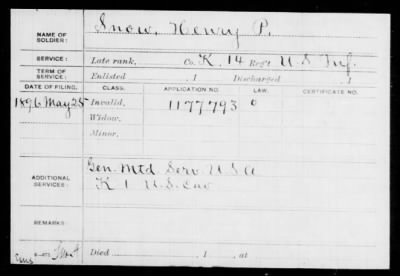 NAME OF SOLDIER: Snow, Henry P.
SERVICE: Late rank, Co. K, 14 Reg't U S Inf.
TERM OF SERVICE: Enlisted , 1 Discharged , 1
DATE OF FILING. CLASS. APPLICATION NO. LAW. CERTIFICATE NO.
1896 May 25 Invalid, 1177793 0
Widow,
Minor,
ADDITIONAL SERVICES: Gen. Mtd Serv. U.S.A
K 1 U.S. Cav
REMARKS:
Died , 1 , at